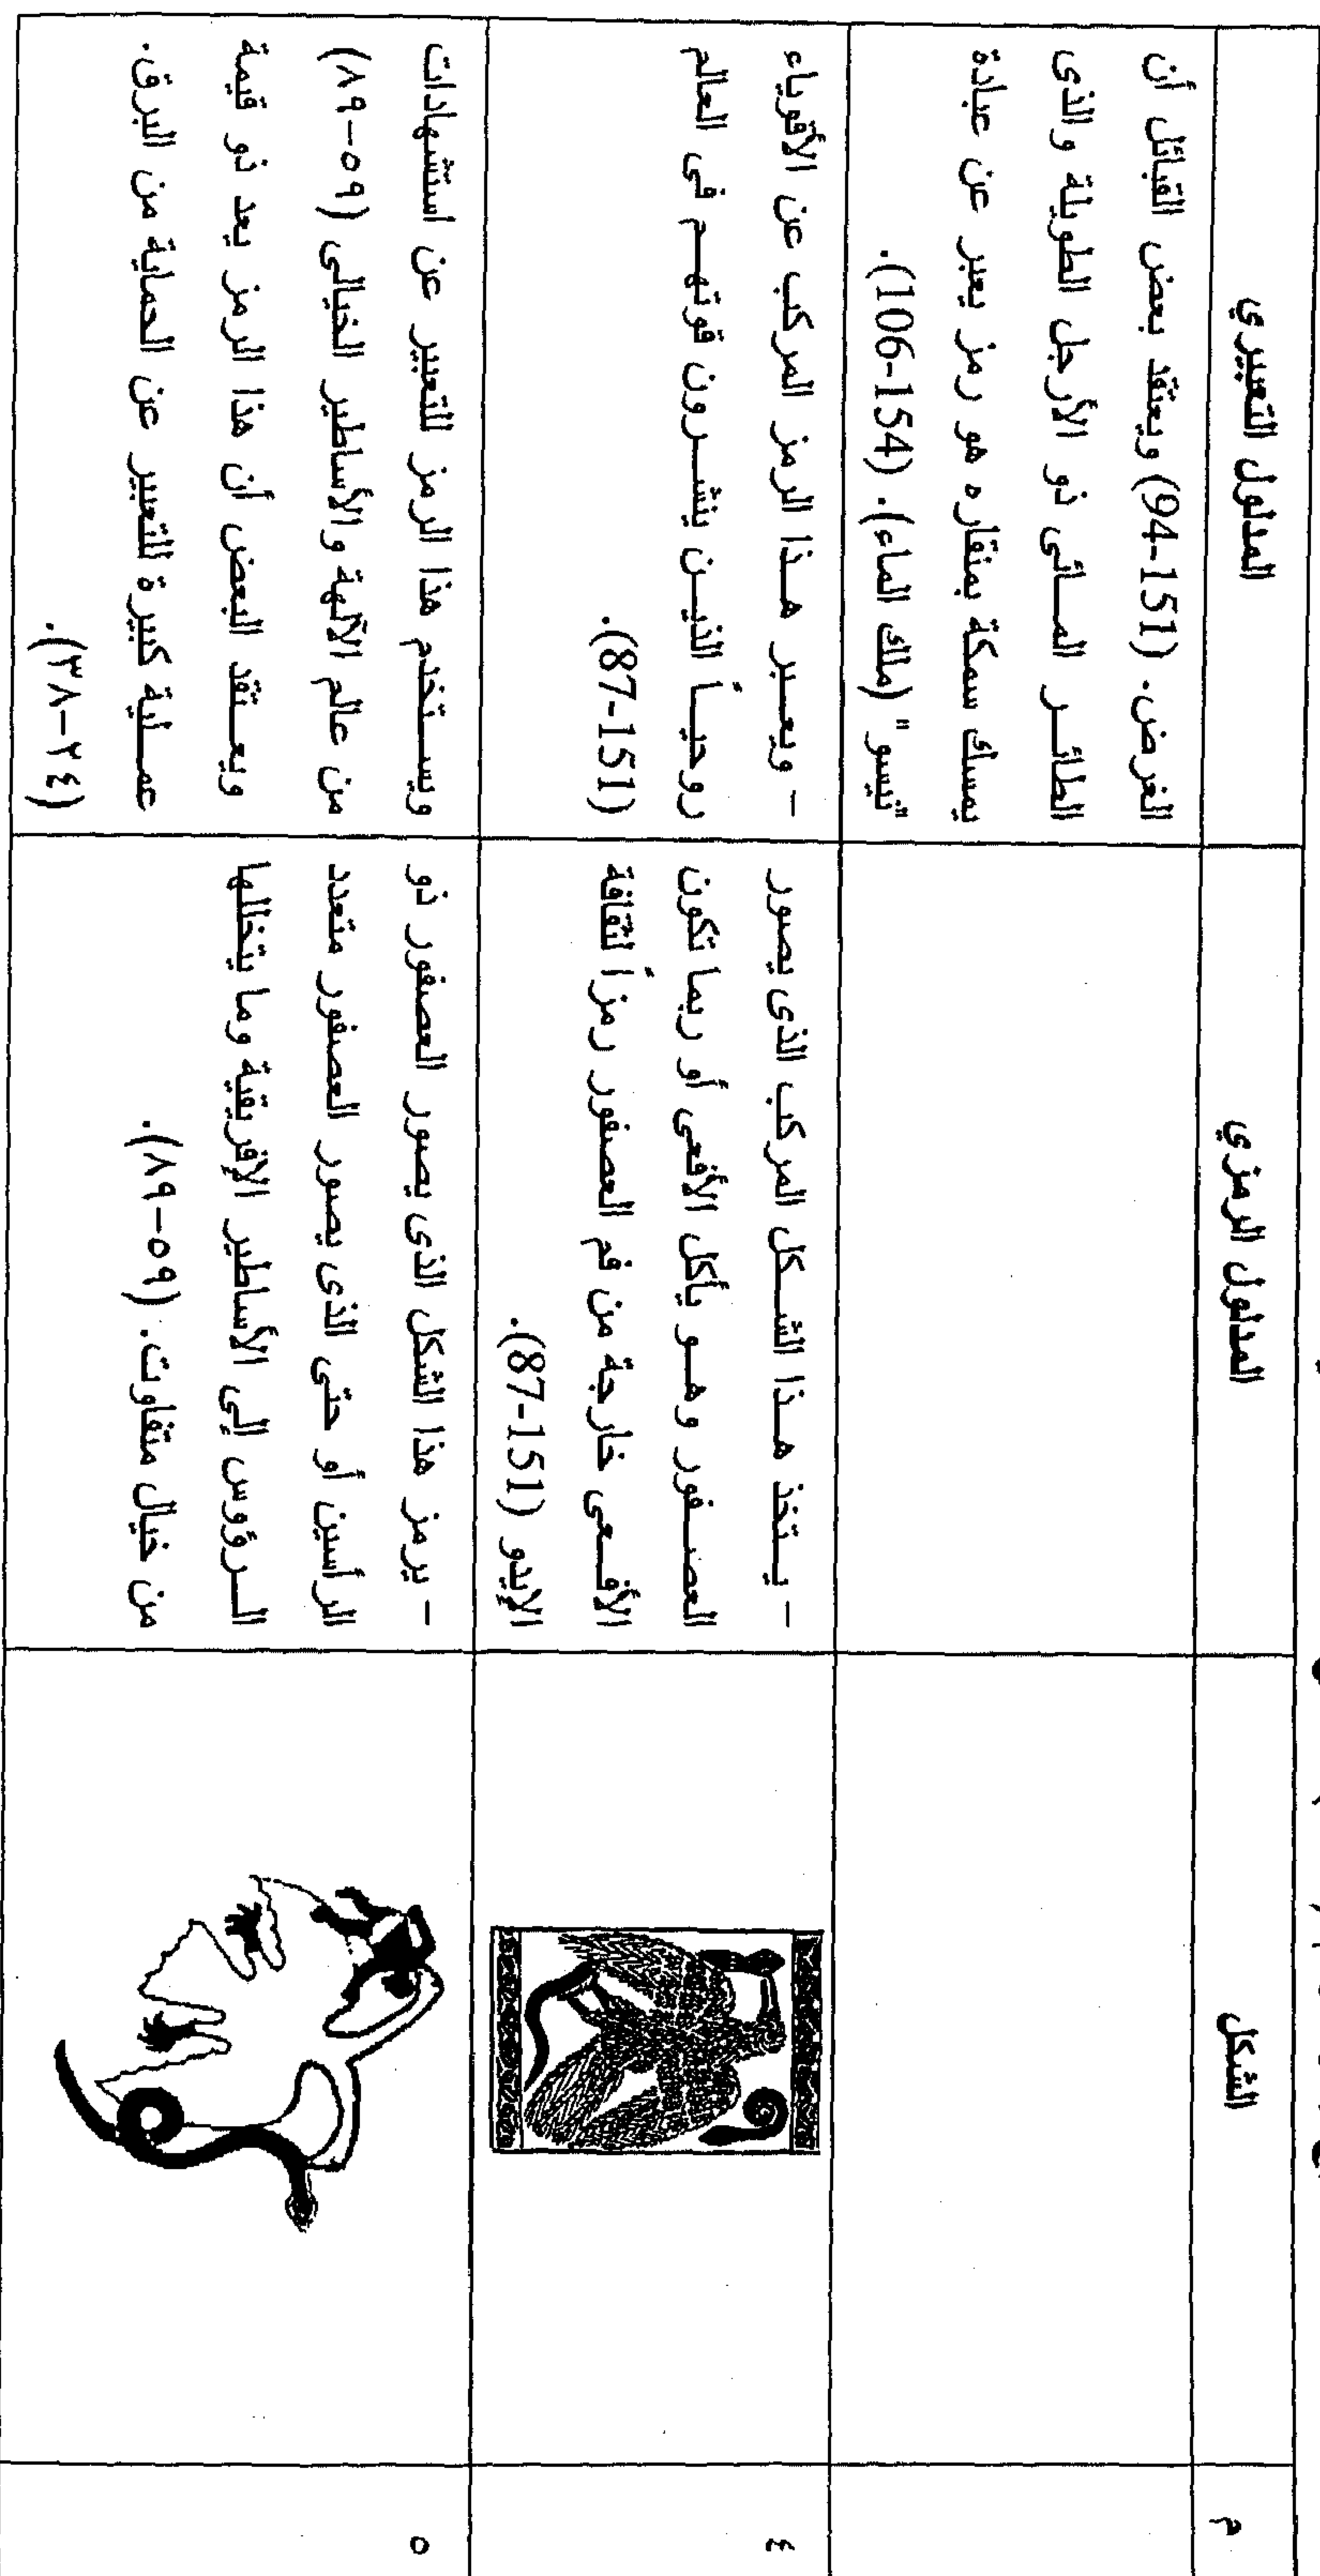 م
الشكل
المدلول الرمزي
المدلول التعبيري
الغرض. (94-151) ويعتقد بعض القبائل أن
الطائر المائى ذو الأرجل الطويلة والذى
يمسك سمكة بمنقاره هو رمز يعبر عن عبادة
"تيسو" (ملك الماء). (106-154).
٤
- يتخذ هذا الشكل المركب الذى يصور
العصفور وهو يأكل الأفعى أو ربما تكون
الأفعى خارجة من فم العصفور رمزاً لثقافة
الإيدو (87-151).
- ويعبر هذا الرمز المركب عن الأقوياء
روحياً الذين ينشرون قوتهم فى العالم
(87-151).
٥
- يرمز هذا الشكل الذى يصور العصفور ذو
الرأسين أو حتى الذى يصور العصفور متعدد
الرؤوس إلى الأساطير الإفريقية وما يتخللها
من خيال متفاوت. (٥٩-٨٩).
ويستخدم هذا الرمز للتعبير عن استشهادات
من عالم الآلهة والأساطير الخيالى (٥٩-٨٩)
ويعتقد البعض أن هذا الرمز يعد ذو قيمة
عملية كبيرة للتعبير عن الحماية من البرق.
(٢٤-٣٨).